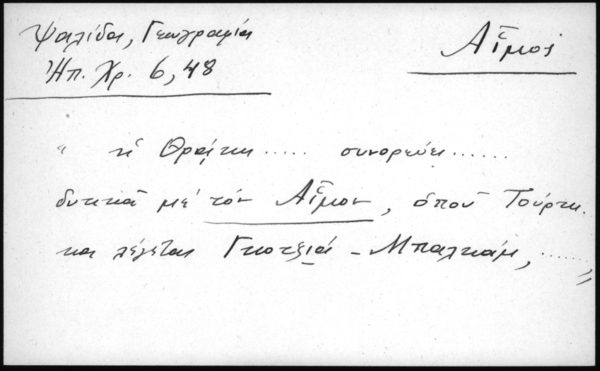 Ψαλίδα, Γεωγραφία
Ἠπ. Χρ. 6, 48
Αἷμος
" ἡ Θράκη ..... συνορεύει ......
δυτικὰ μὲ τὸν Αἷμον, ὁποῦ Τούρκι-
κα λέγεται Γκοτζιά - Μπαλκάμ, ...... "